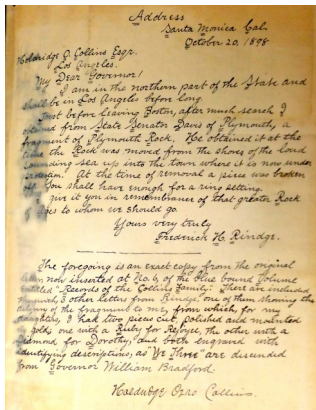 Address
Santa Monica Cal.
October 20, 1898.
Holdridge O. Collins Esqr.
Los Angeles.
My Dear Governor!
I am in the northern part of the State and
shall be in Los Angeles before long.
Just before leaving Boston, after much search I
obtained from State Senator Davis of Plymouth, a
fragment of Plymouth Rock. He obtained it at the
time the Rock was moved from the shore of the loud
sounding sea up into the town where it is now under
protection. At the time of removal a piece was broken
off. You shall have enough for a ring setting.
I give it you in remembrance of that greater Rock
of Ages to whom we should go.
Yours very truly
Frederick H. Rindge.
The foregoing is an exact copy from the original
letter now inserted at No. 6, of the blue bound volume
entitled "Records of the Collins Family." There are included
therewith, 3 other letters from Rindge, one of them showing the
delivery of the fragment to me, from which, for my
daughters, I had two pieces cut, polished and mounted
in gold, one with a Ruby for the other with a
Diamond for Dorothy, and both engraved with
identifying descriptions, as "We Three" are descended
from Governor William Bradford.
Holdridge Ozro Collins.